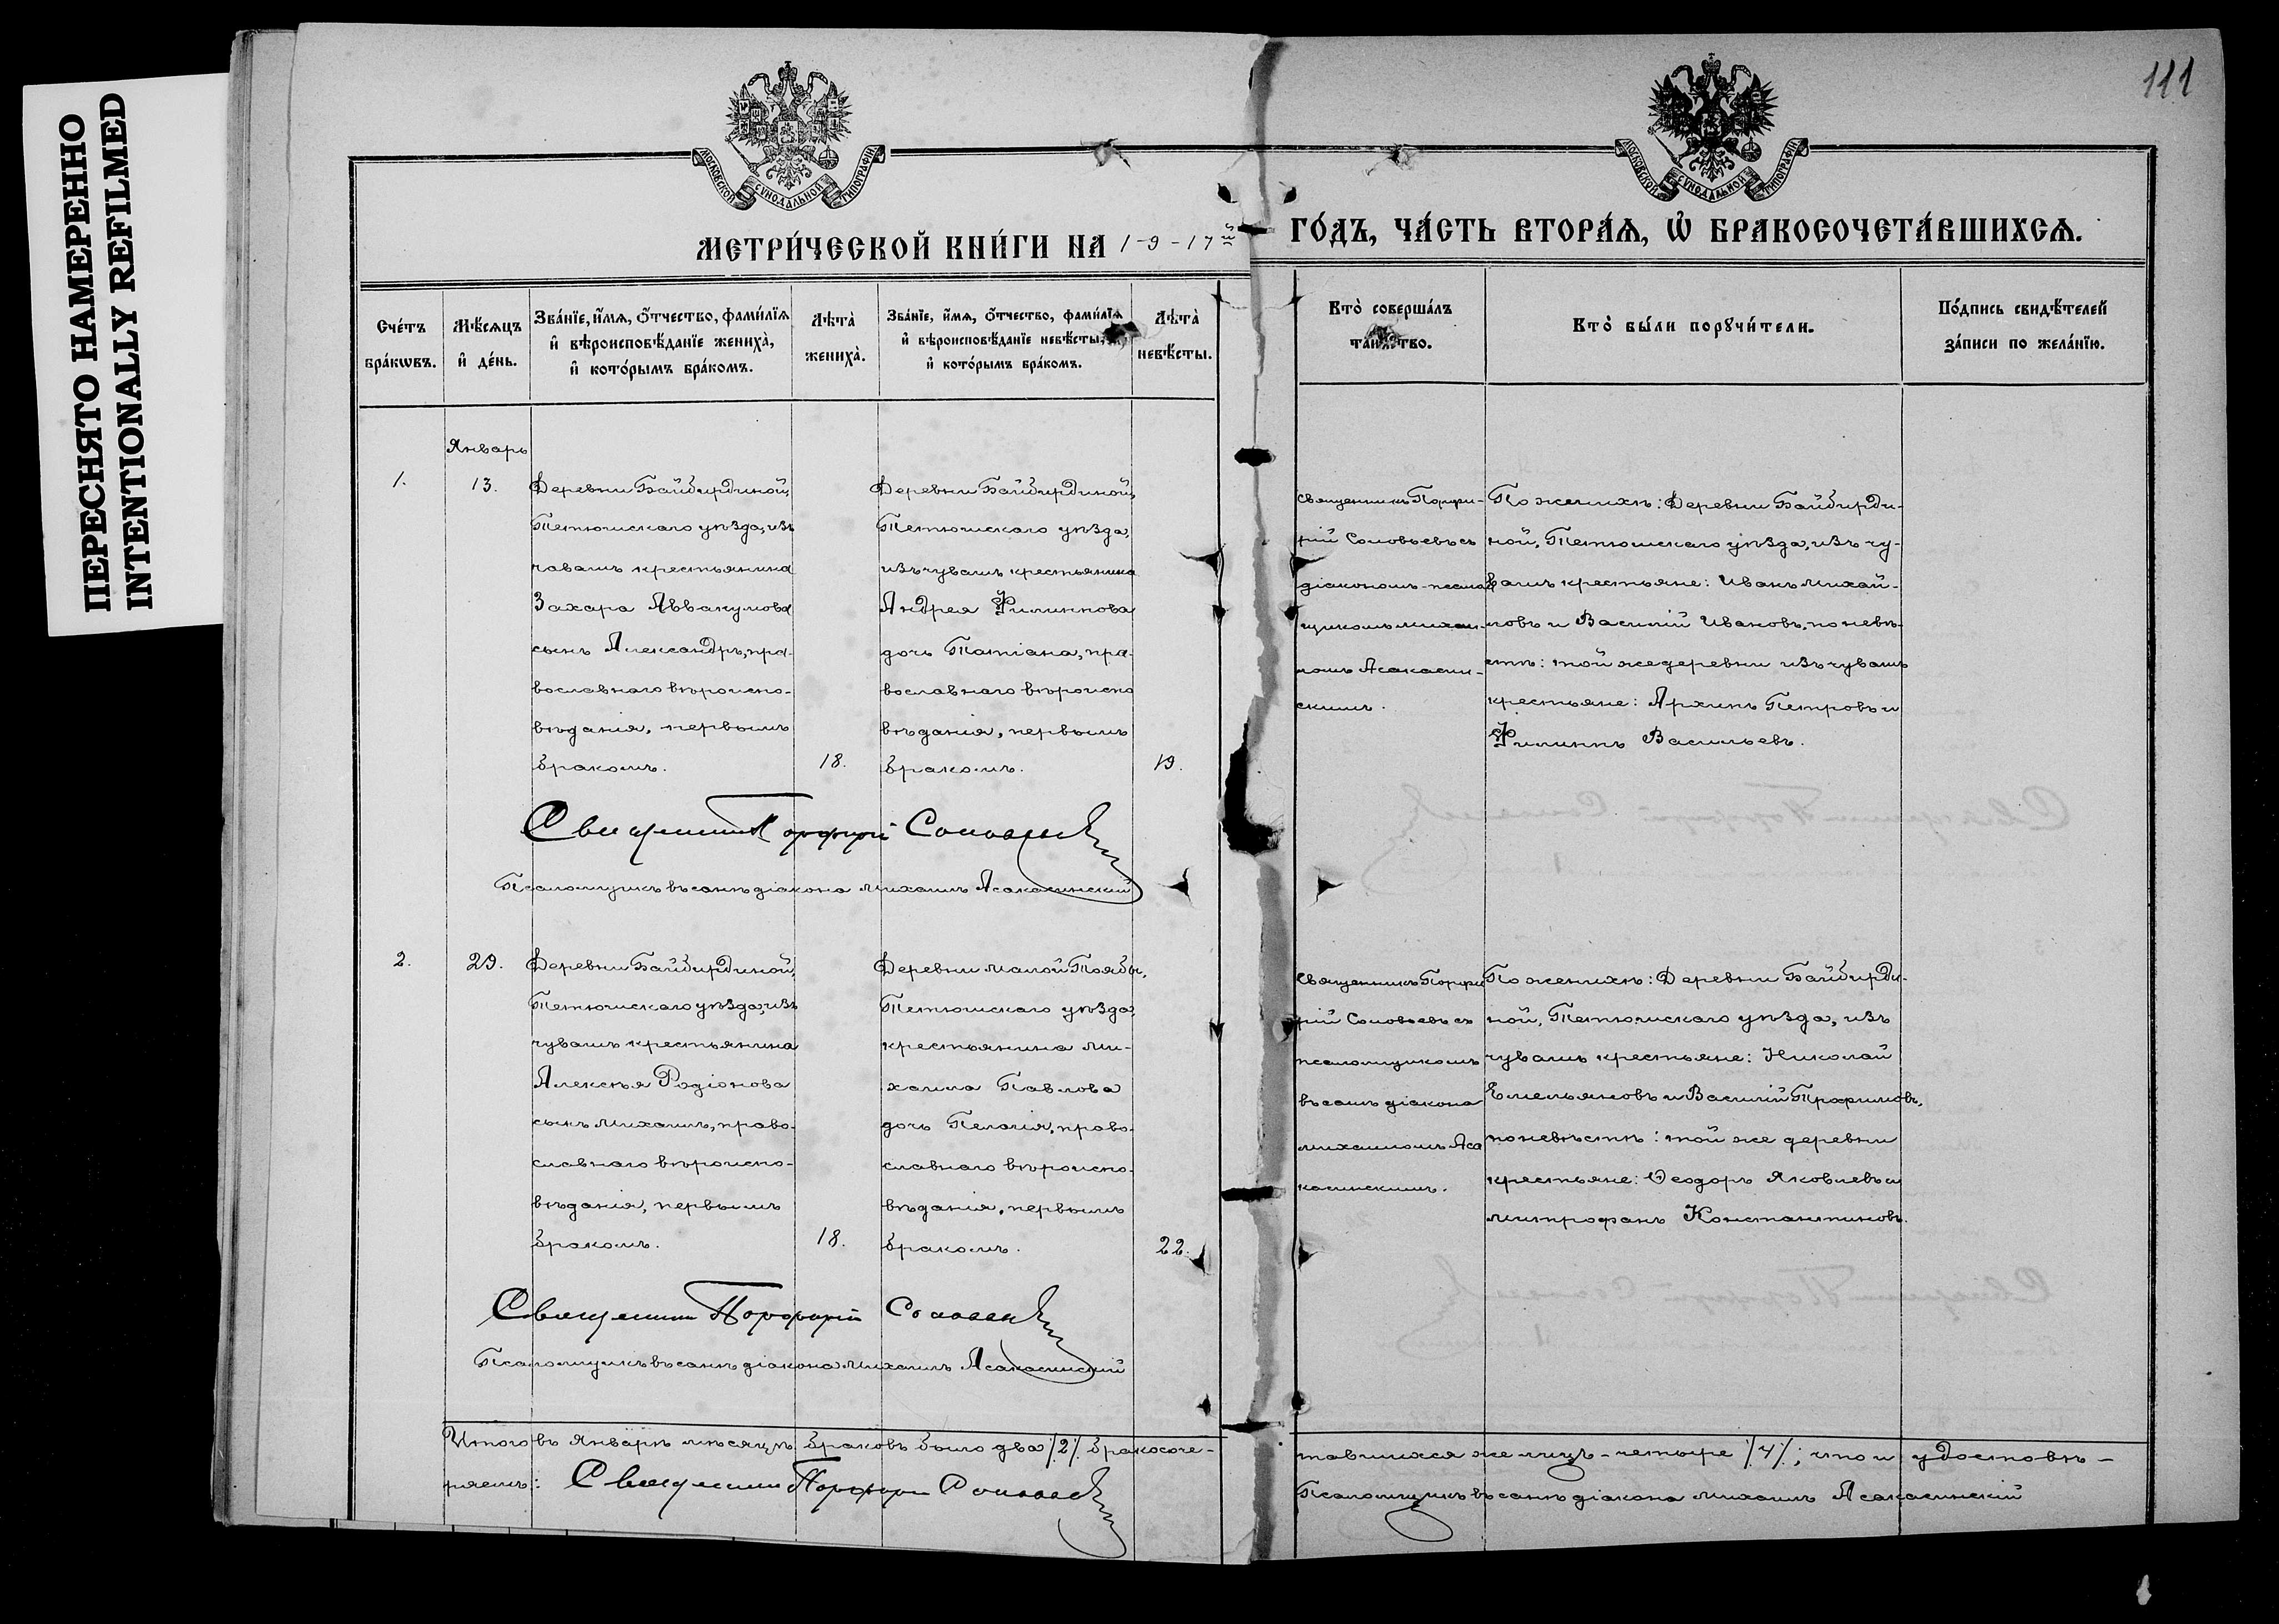 ПЕРЕСНЯТО НАМЕРЕННО
INTENTIONALLY REFILMED
111
МОСКОВСКОЙ СѴНОДАЛЬНОЙ ТИПОГРАФІИ
МОСКОВСКОЙ СѴНОДАЛЬНОЙ ТИПОГРАФІИ
МЕТРИ́ЧЕСКОЙ КНИ́ГИ НА 1917й ГО́ДЪ, ЧА́СТЬ ВТОРА́Ѧ, Ѡ҆ БРАКОСОЧЕТА́ВШИХСѦ.
Сче́тъ
бра́кѡвъ.
Мѣ́сѧцъ
и҆ де́нь.
Зва́нїе, и҆́мѧ, ѻ҆́тчество, фами́лїѧ
и҆ вѣроисповѣ́данїе жениха̀,
и҆ кото́рымъ бра́комъ.
Лѣта̀
жениха̀.
Зва́нїе, и҆́мѧ, ѻ҆́тчество, фами́лїѧ
и҆ вѣроисповѣ́данїе невѣ́сты,
и҆ кото́рымъ бра́комъ.
Лѣта̀
невѣ́сты.
Кто̀ соверша́лъ
таинство.
Кто̀ бы́ли порꙋчи́тели.
По́дпись свидѣ́телей
за́писи по жела́нїю.
Январь
1.
13.
Деревни Байбирдиной,
Тетюшскаго уѣзда, изъ
чувашъ крестьянина
Захара Аввакумова
сынъ Александръ, пра-
вославнаго вѣроиспо-
вѣданія, первымъ
бракомъ.
18.
Деревни Байбирдиной,
Тетюшскаго уѣзда,
изъ чувашъ крестьянина
Андрея Филиппова
дочь Татіана, пра-
вославнаго вѣроиспо
вѣданія, первымъ
бракомъ.
19.
Священникъ Порфи-
рій Соловьевъ съ
діакономъ-псалом
щикомъ Михаи-
ломъ Асакасин-
скимъ.
По женихѣ: Деревни Байбирди-
ной, Тетюшскаго уѣзда, изъ чу-
вашъ крестьяне: Иванъ Михай-
ловъ и Василій Ивановъ, по невѣ-
стѣ: той же деревни изъ чувашъ
крестьяне: Архипъ Петровъ и
Филиппъ Васильевъ.
Священникъ Порфирій Соловьевъ
Псаломщикъ въ санѣ діакона Михаилъ Асакасинскій
2.
29.
Деревни Байбирдиной,
Тетюшскаго уѣзда, изъ
чувашъ крестьянина
Алексѣя Родіонова
сынъ Михаилъ, право-
славнаго вѣроиспо-
вѣданія, первымъ
бракомъ.
18.
Деревни Малой Тоябы,
Тетюшскаго уѣзда,
крестьянина Ми-
хаила Павлова
дочь Пелагія, право-
славнаго вѣроиспо-
вѣданія, первымъ
бракомъ.
22.
Священникъ Порфи
рій Соловьевъ съ
псаломщикомъ
въ санѣ діакона
Михаиломъ Аса
касинскимъ.
По женихѣ: Деревни Байбирди-
ной, Тетюшскаго уѣзда, изъ
чувашъ крестьяне: Николай
Емельяновъ и Василій Трофимовъ,
по невѣстѣ: той же деревни
крестьяне: Ѳеодоръ Яковлевъ и
Митрофанъ Константиновъ.
Священникъ Порфирій Соловьевъ
Псаломщикъ въ санѣ діакона Михаилъ Асакасинскій
Итого въ Январѣ мѣсяцѣ браковъ было два /2/ бракосоче-
тавшихся же лицъ - четыре /4/; что и удостовѣ-
ряемъ: Священникъ Порфирій Соловьевъ
Псаломщикъ въ санѣ діакона Михаилъ Асакасинскій